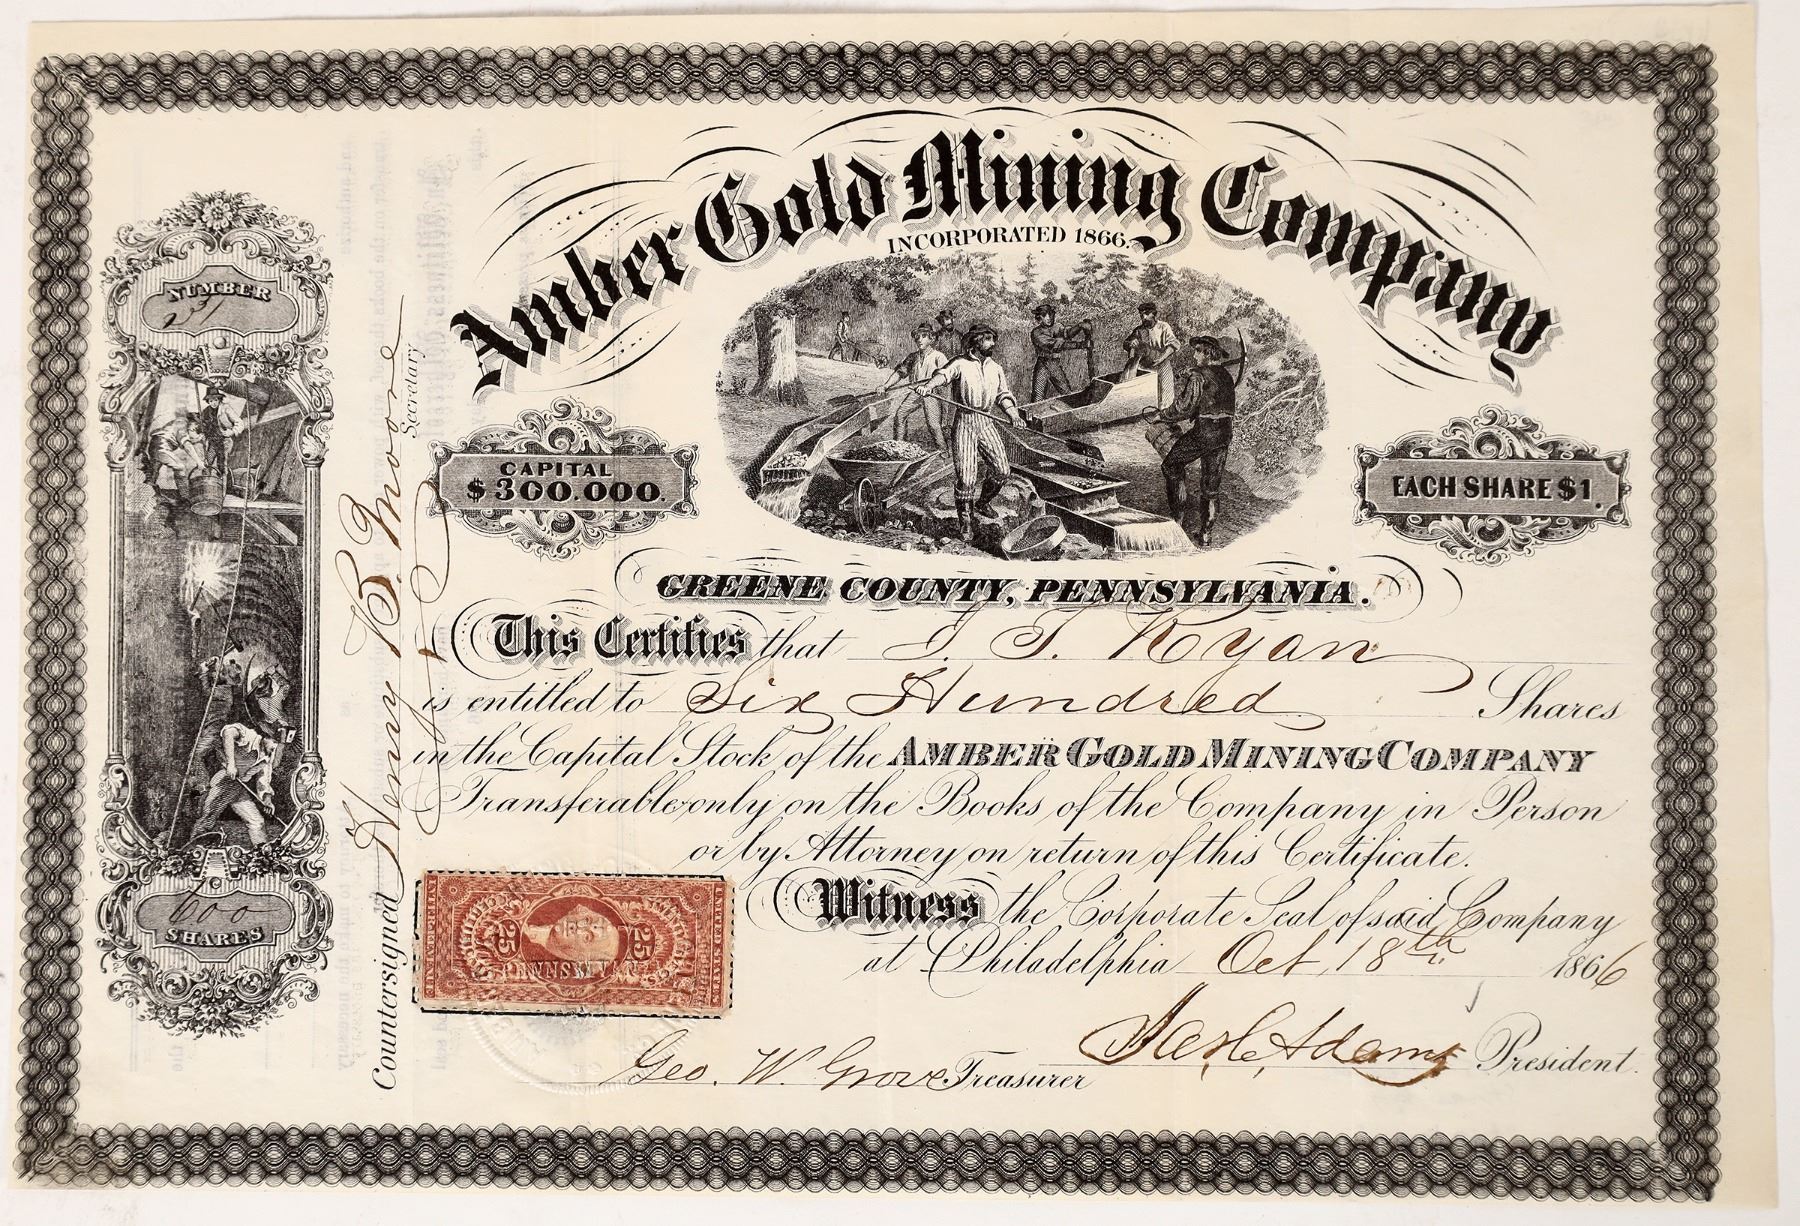 Amber Gold Mining Company
INCORPORATED 1866.
NUMBER
CAPITAL
$300.000.
EACH SHARE $1.
GREENE COUNTY, PENNSYLVANIA.
This Certifies that J. T. Ryan
is entitled to Six Hundred Shares
in the Capital Stock of the AMBER GOLD MINING COMPANY
Transferable only on the Books of the Company in Person
or by Attorney on return of this Certificate.
Witness the Corporate Seal of said Company
at Philadelphia Oct, 18th 1866
Adams President.
Geo. W. Grove Treasurer
Countersigned Henry B. Moore Secretary
600
SHARES
25 25
PENNSYLVANIA
UNITED STATES